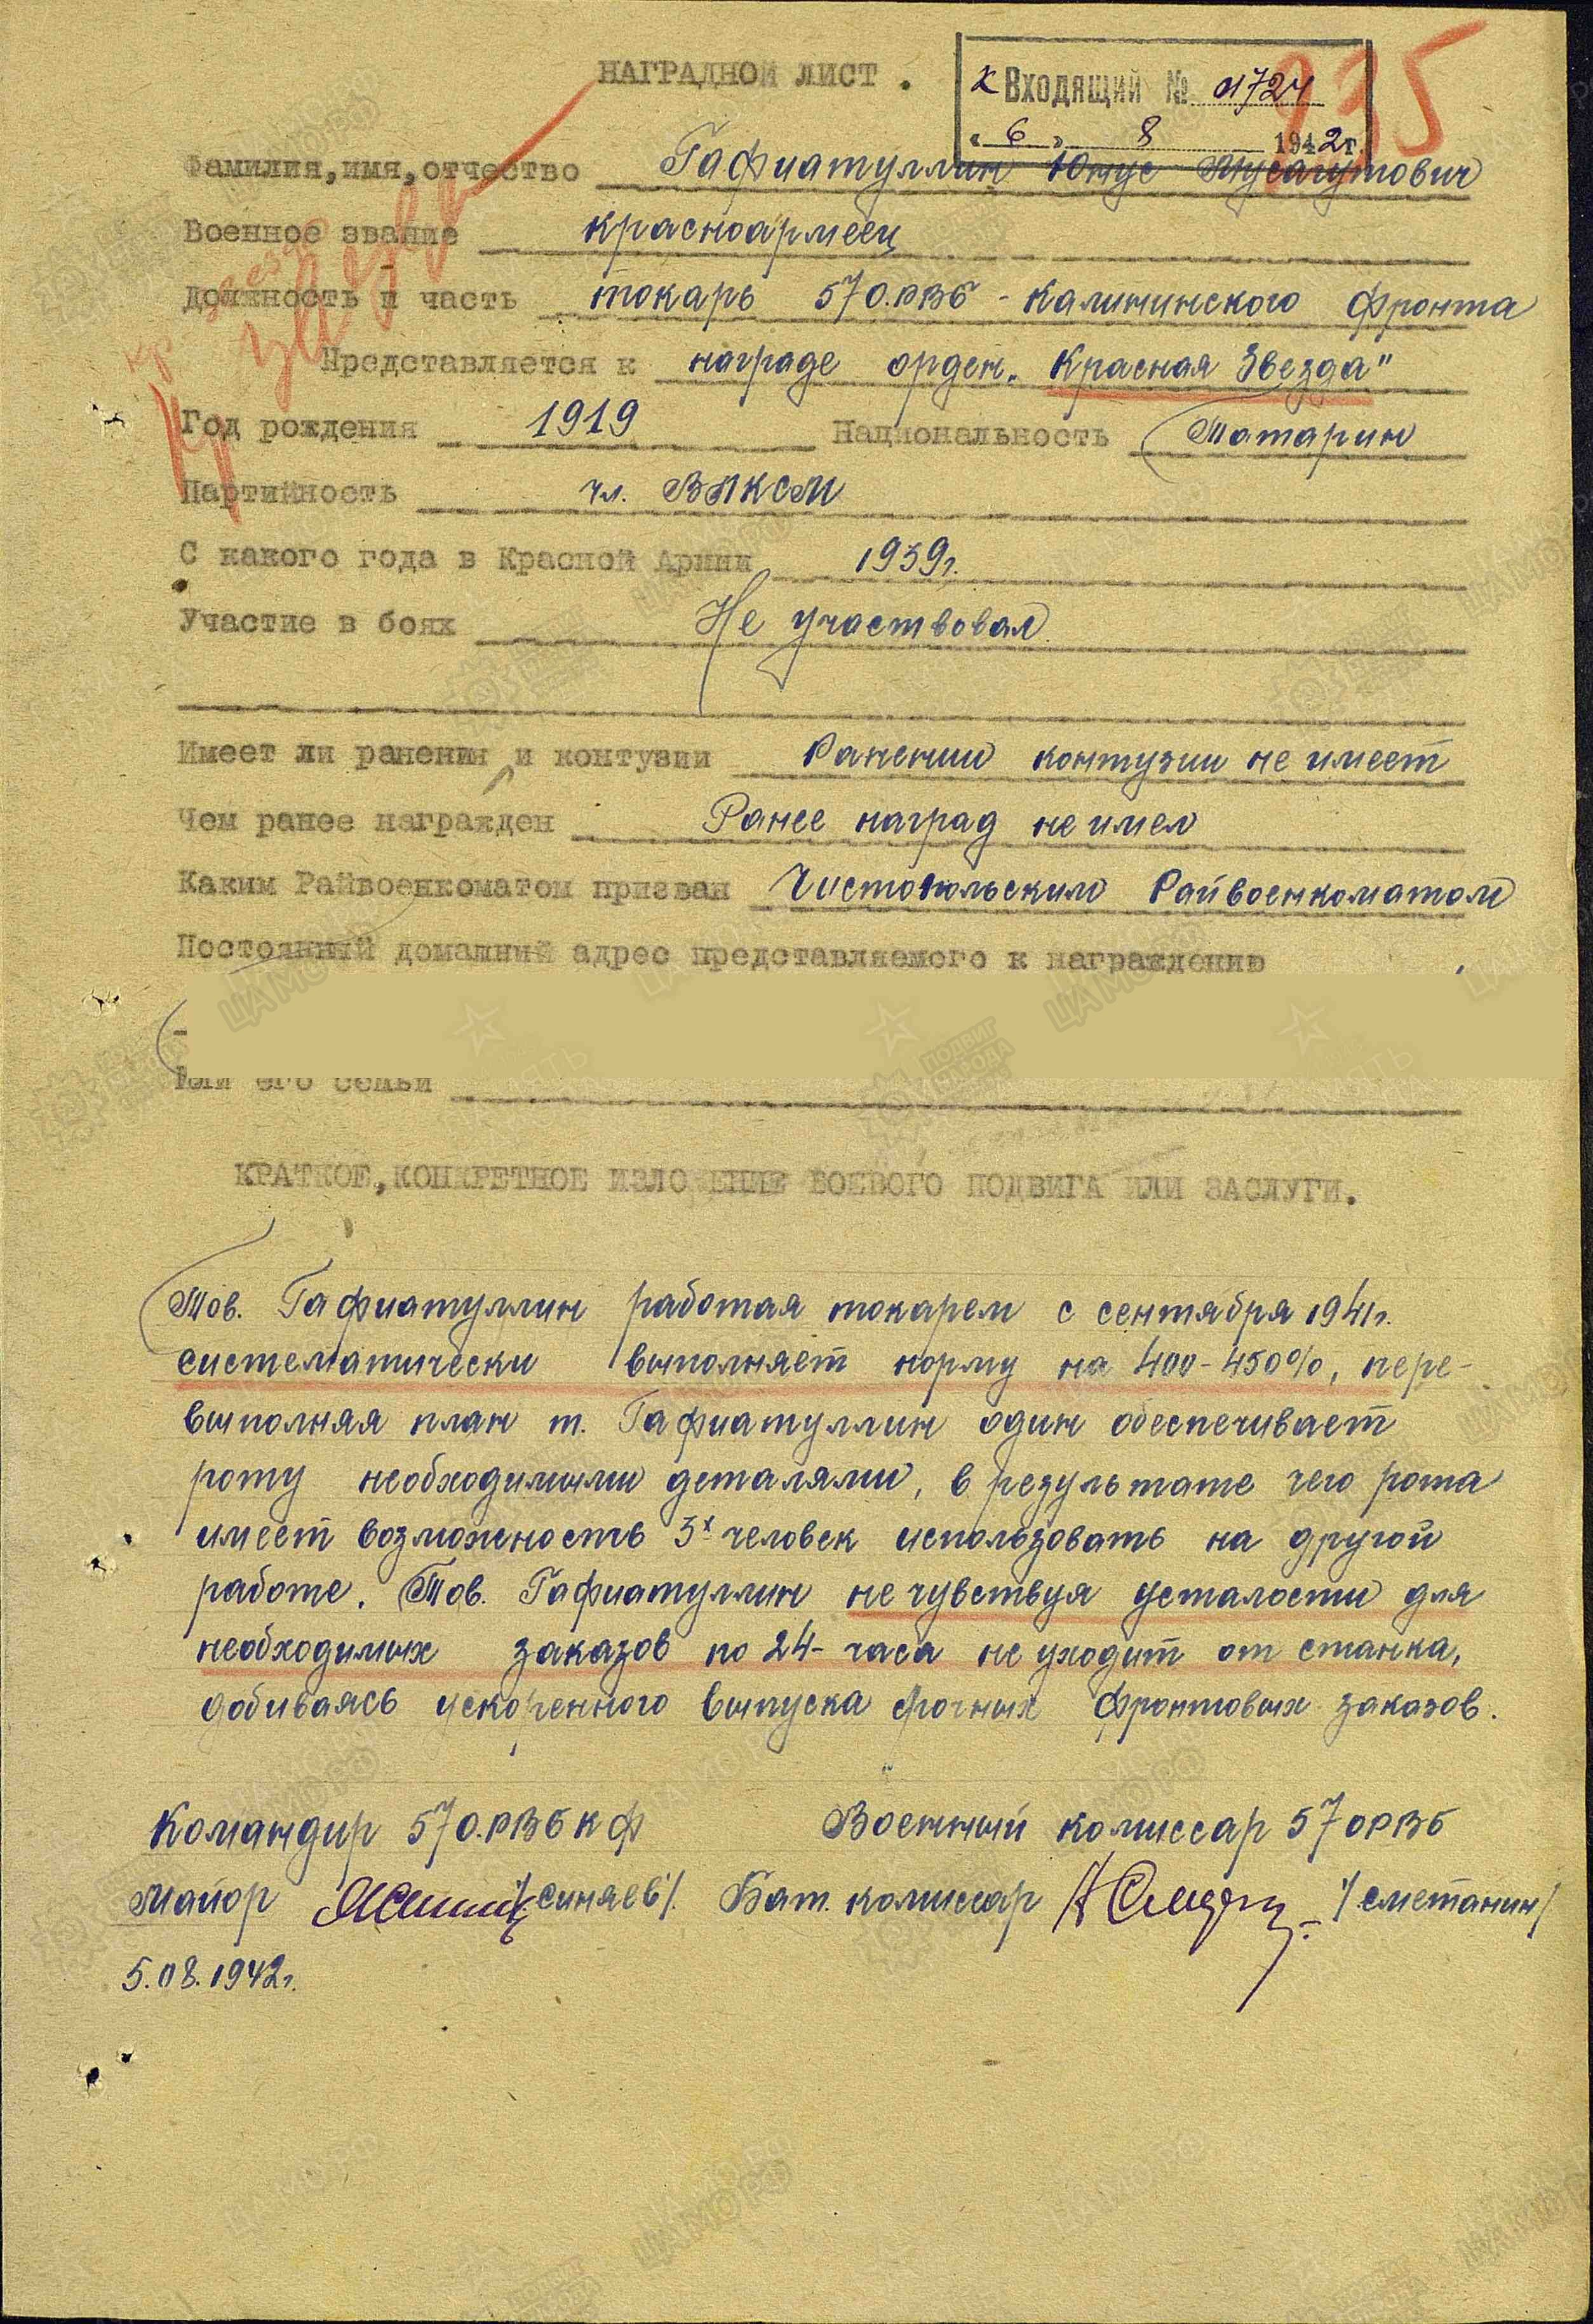 НАГРАДНОЙ ЛИСТ.
Входящий № 01724
"6" 8 1942г.
Фамилия,имя,отчество Гафиатуллин Юнус Мусагутович
Военное звание красноармеец
Должность и часть токарь 57 О.РВБ - Калининского Фронта
Представляется к награде орден. Красная Звезда"
Год рождения 1919 Национальность Татарин
Партийность чл. ВЛКСМ
С какого года в Красной Армии 1939г.
Участие в боях Не участвовал
Имеет ли ранения и контузии Ранений контузии не имеет
Чем ранее награжден Ранее наград не имел
Каким Райвоенкоматом призван Чистопольским Райвоенкоматом
Постоянный домашний адрес представляемого к награждению
Или его семьи
КРАТКОЕ,КОНКРЕТНОЕ ИЗЛОЖЕНИЕ БОЕВОГО ПОДВИГА ИЛИ ЗАСЛУГИ.
Тов. Гафиатуллин работая токарем с сентября 1941г.
систематически выполняет норму на 400-450%, пере-
выполняя план т. Гафиатуллин один обеспечивает
роту необходимыми деталями, в результате чего рота
имеет возможность 3х человек использовать на другой
работе. Тов. Гафиатуллин не чувствуя усталости для
необходимых заказов по 24- часа не уходит от станка,
добиваясь ускоренного выпуска срочных фронтовых заказов.
Командир 57 О.РВБ КФ Военный комиссар 57 ОРВБ
Майор /Синяев/. Бат. комиссар /Сметанин/
5.08.1942г.